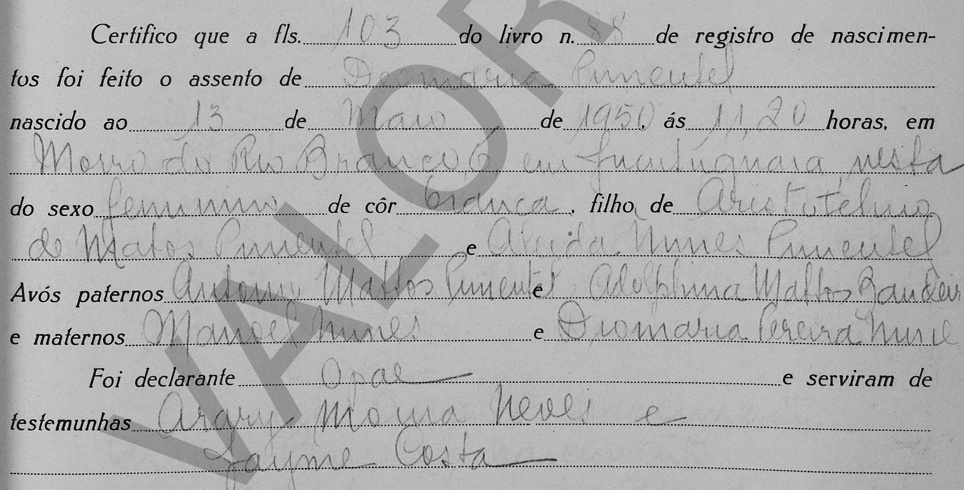 Certifico que a fls. 103 do livro n. 88 de registro de nascimen-
tos foi feito o assento de Pimentel
nascido ao 13 de Maio de 1950, ás 11,20 horas, em
Morro do Rio Branco, 6 em Jucutuquara nesta
do sexo feminino de côr branca, filho de Aristotelino
de Matos Pimentel e Alcida Nunes Pimentel
Avós paternos Antonio Mattos Pimentel e Adolphina Mattos
e maternos Manoel Nunes e Diomaria Pereira Nune
Foi declarante O pae e serviram de
testemunhas Moura Neves e
Jayme Costa
VALOR